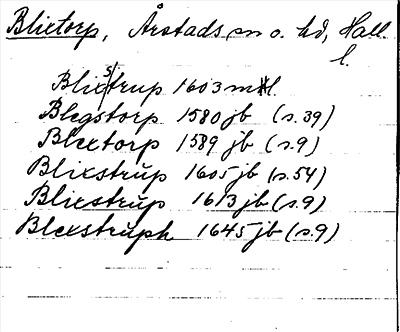 Blixtorp, Årstads sn o. hd, Hall.
l.
Blixstrup 1603 mtl.
Blegstorp 1580 jb (s.39)
Blextorp 1589 jb (s.9)
Blixstrup 1605 jb (s.54)
Blixstrup 1613 jb (s.9)
Blexstruph 1645 jb (s.9)